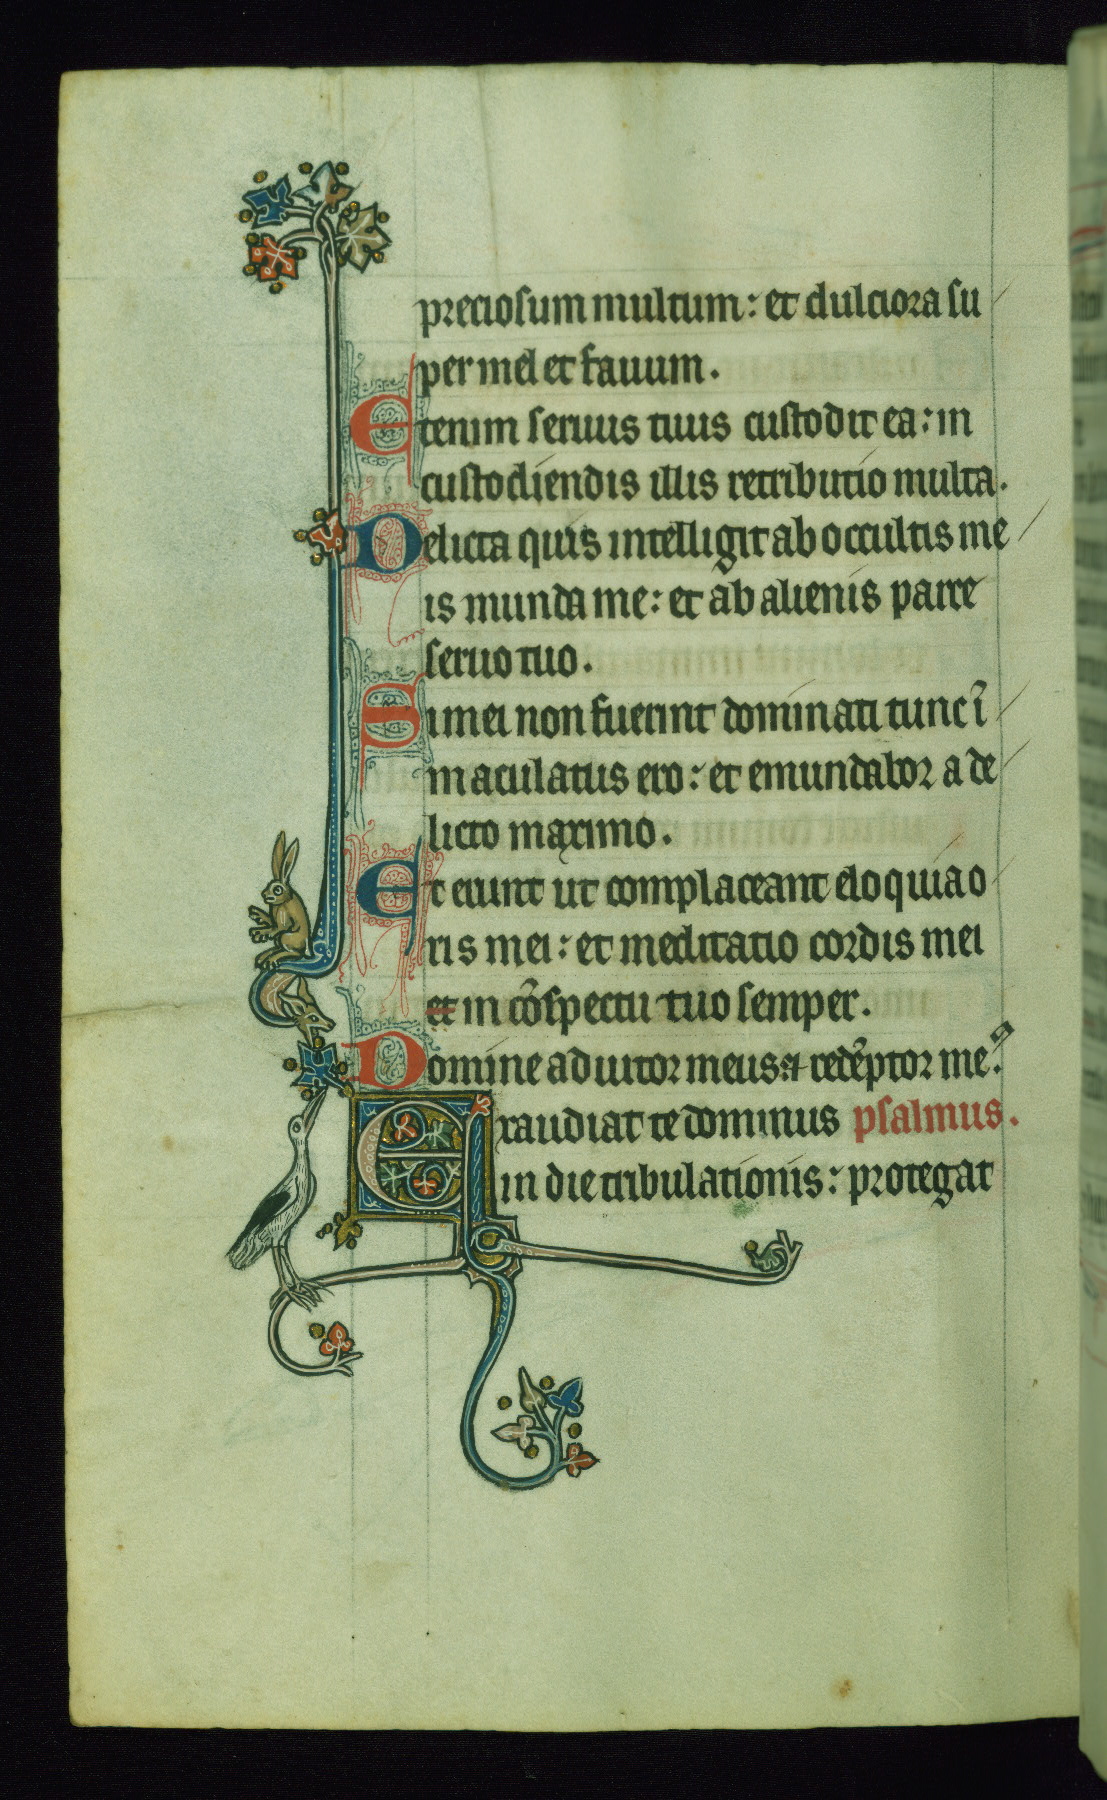 preciosum multum: et dulciora su
per mel et fauum.
Etenim seruus tuus custodit ea: in
custodiendis illis retributio multa.
Delicta quis intelligit ab occultis me
is munda me: et ab alienis parce
seruo tuo.
Si mei non fuerint dominati tunc ī
maculatus ero: et emundabor a de
licto maximo.
Et erunt ut complaceant eloquia o
ris mei: et meditatio cordis mei
et in cōspectu tuo semper.
Domine adiutor meus: et redēptor me9.
Exaudiat te dominus psalmus.
in die tribulationis: protegat